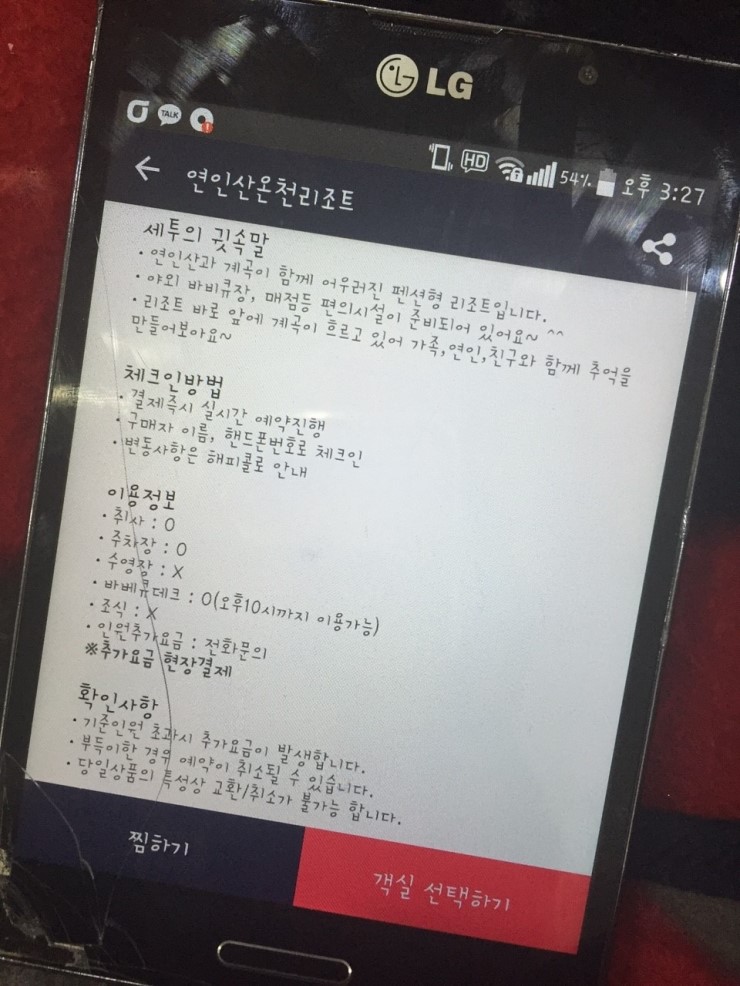 LG
TALK
HD 54% 오후 3:27
연인산온천리조트
세투의 귓속말
· 연인산과 계곡이 함께 어우러진 펜션형 리조트입니다.
· 야외 바비큐장, 매점등 편의시설이 준비되어 있어요~ ^^
· 리조트 바로 앞에 계곡이 흐르고 있어 가족,연인,친구와 함께 추억을
만들어보아요~
체크인방법
· 결제즉시 실시간 예약진행
· 구매자 이름, 핸드폰번호로 체크인
· 변동사항은 해피콜로 안내
이용정보
· 취사 : O
· 주차장 : O
· 수영장 : X
· 바베큐데크 : O(오후10시까지 이용가능)
· 조식 : X
· 인원추가요금 : 전화문의
※추가요금 현장결제
확인사항
· 기준인원 초과시 추가요금이 발생합니다.
· 부득이한 경우 예약이 취소될 수 있습니다.
· 당일상품의 특성상 교환/취소가 불가능 합니다.
찜하기
객실 선택하기